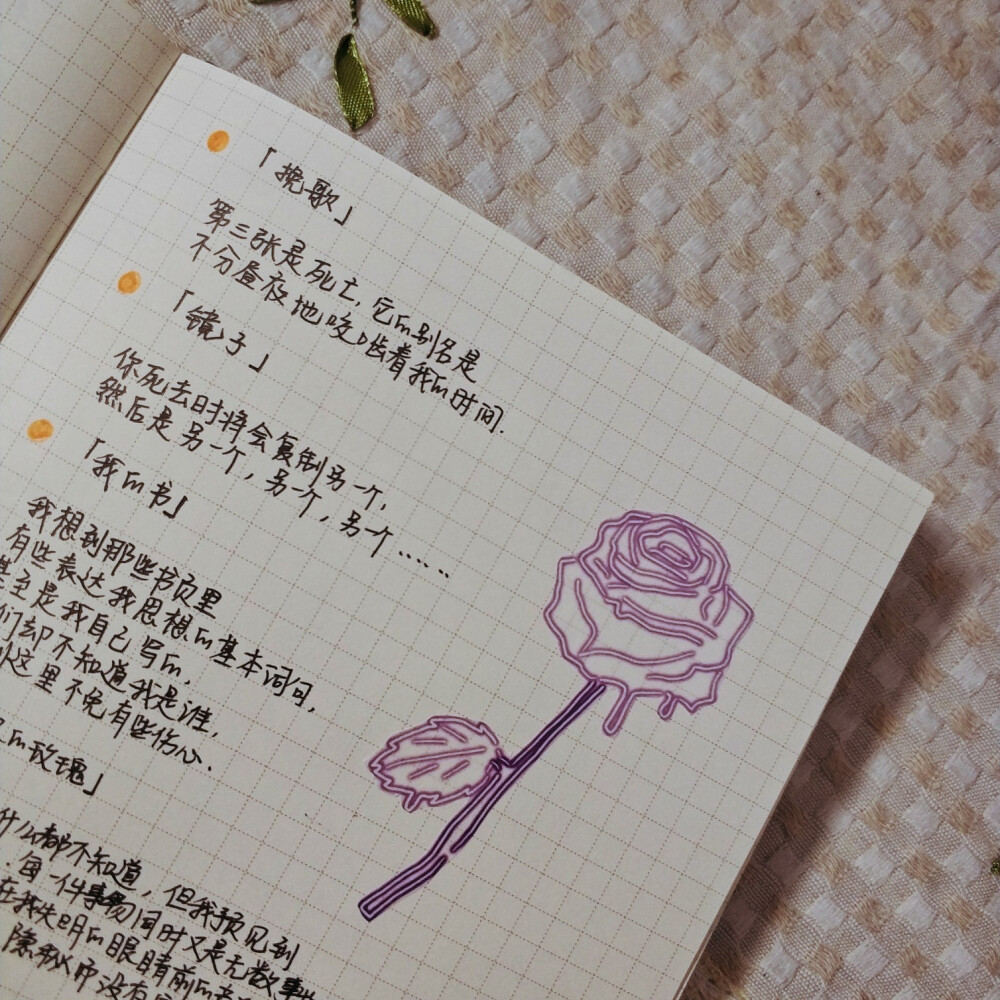 「挽歌」
第三张是死亡,它的别名是
不分昼夜地咬啮着我的时间.
「镜子」
你死去时将会复制另一个,
然后是另一个,另一个,另一个……
「我的书」
我想到那些书页里
有些表达我思想的基本词句,
甚至是我自己写的,
们却不知道我是谁,
这里不免有些伤心.
的玫瑰」
什么都不知道,但我预见到
每一件事物同时又是无数事物
在我失明的眼睛前的
你没有